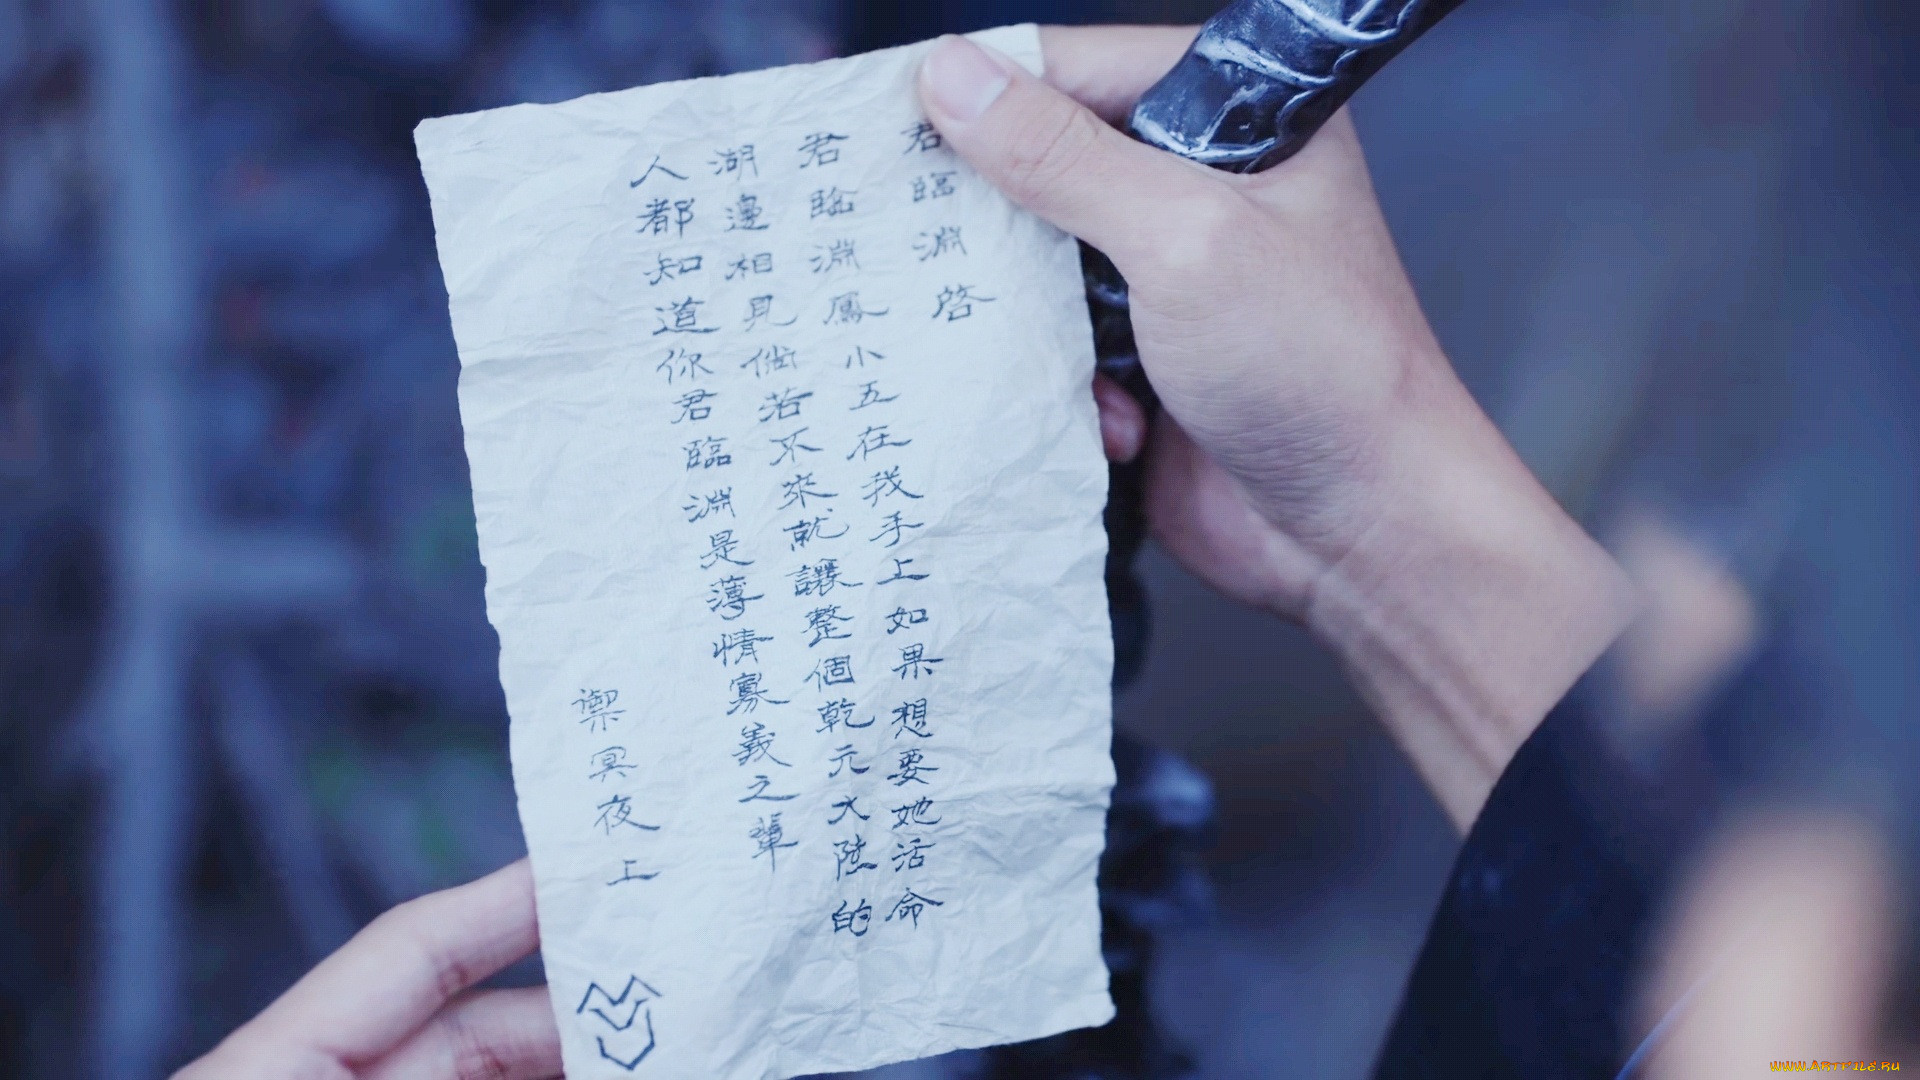 君臨淵啓
君臨淵鳳小五在我手上如果想要她活命
湖邊相見倘若不來就讓整個乾元大陸的
人都知道你君臨淵是薄情寡義之輩
禦冥夜上
WWW.ARTFILE.RU